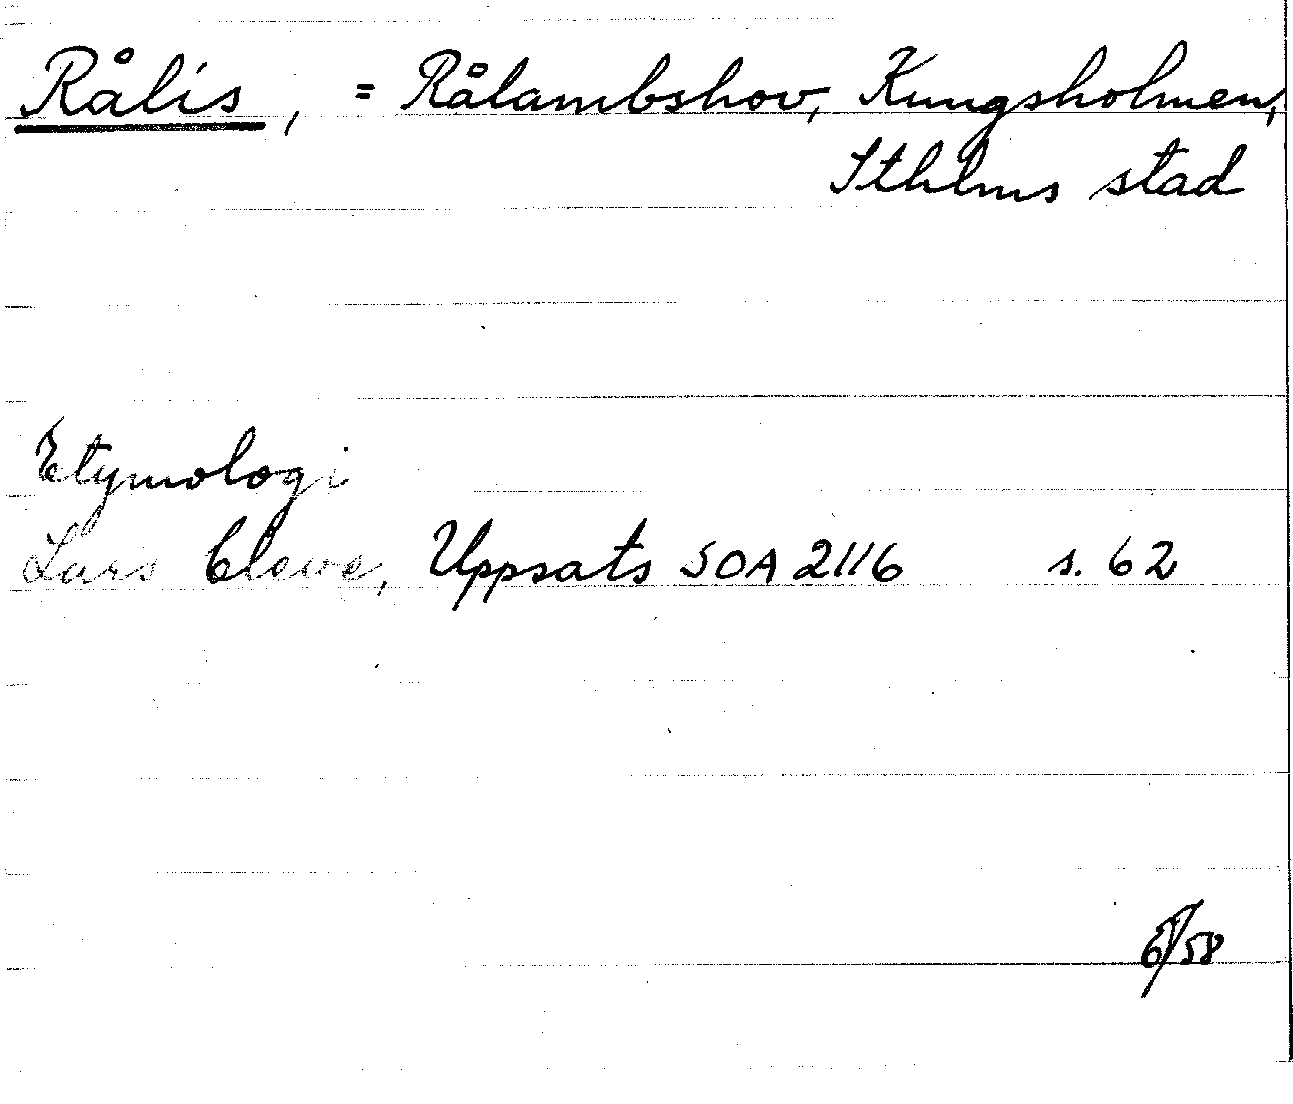 Rålis, = Rålambshov, Kungsholmen,
Sthlms stad
Etymologi
Lars Cleve, Uppsats SOA 2116 s. 62
/58